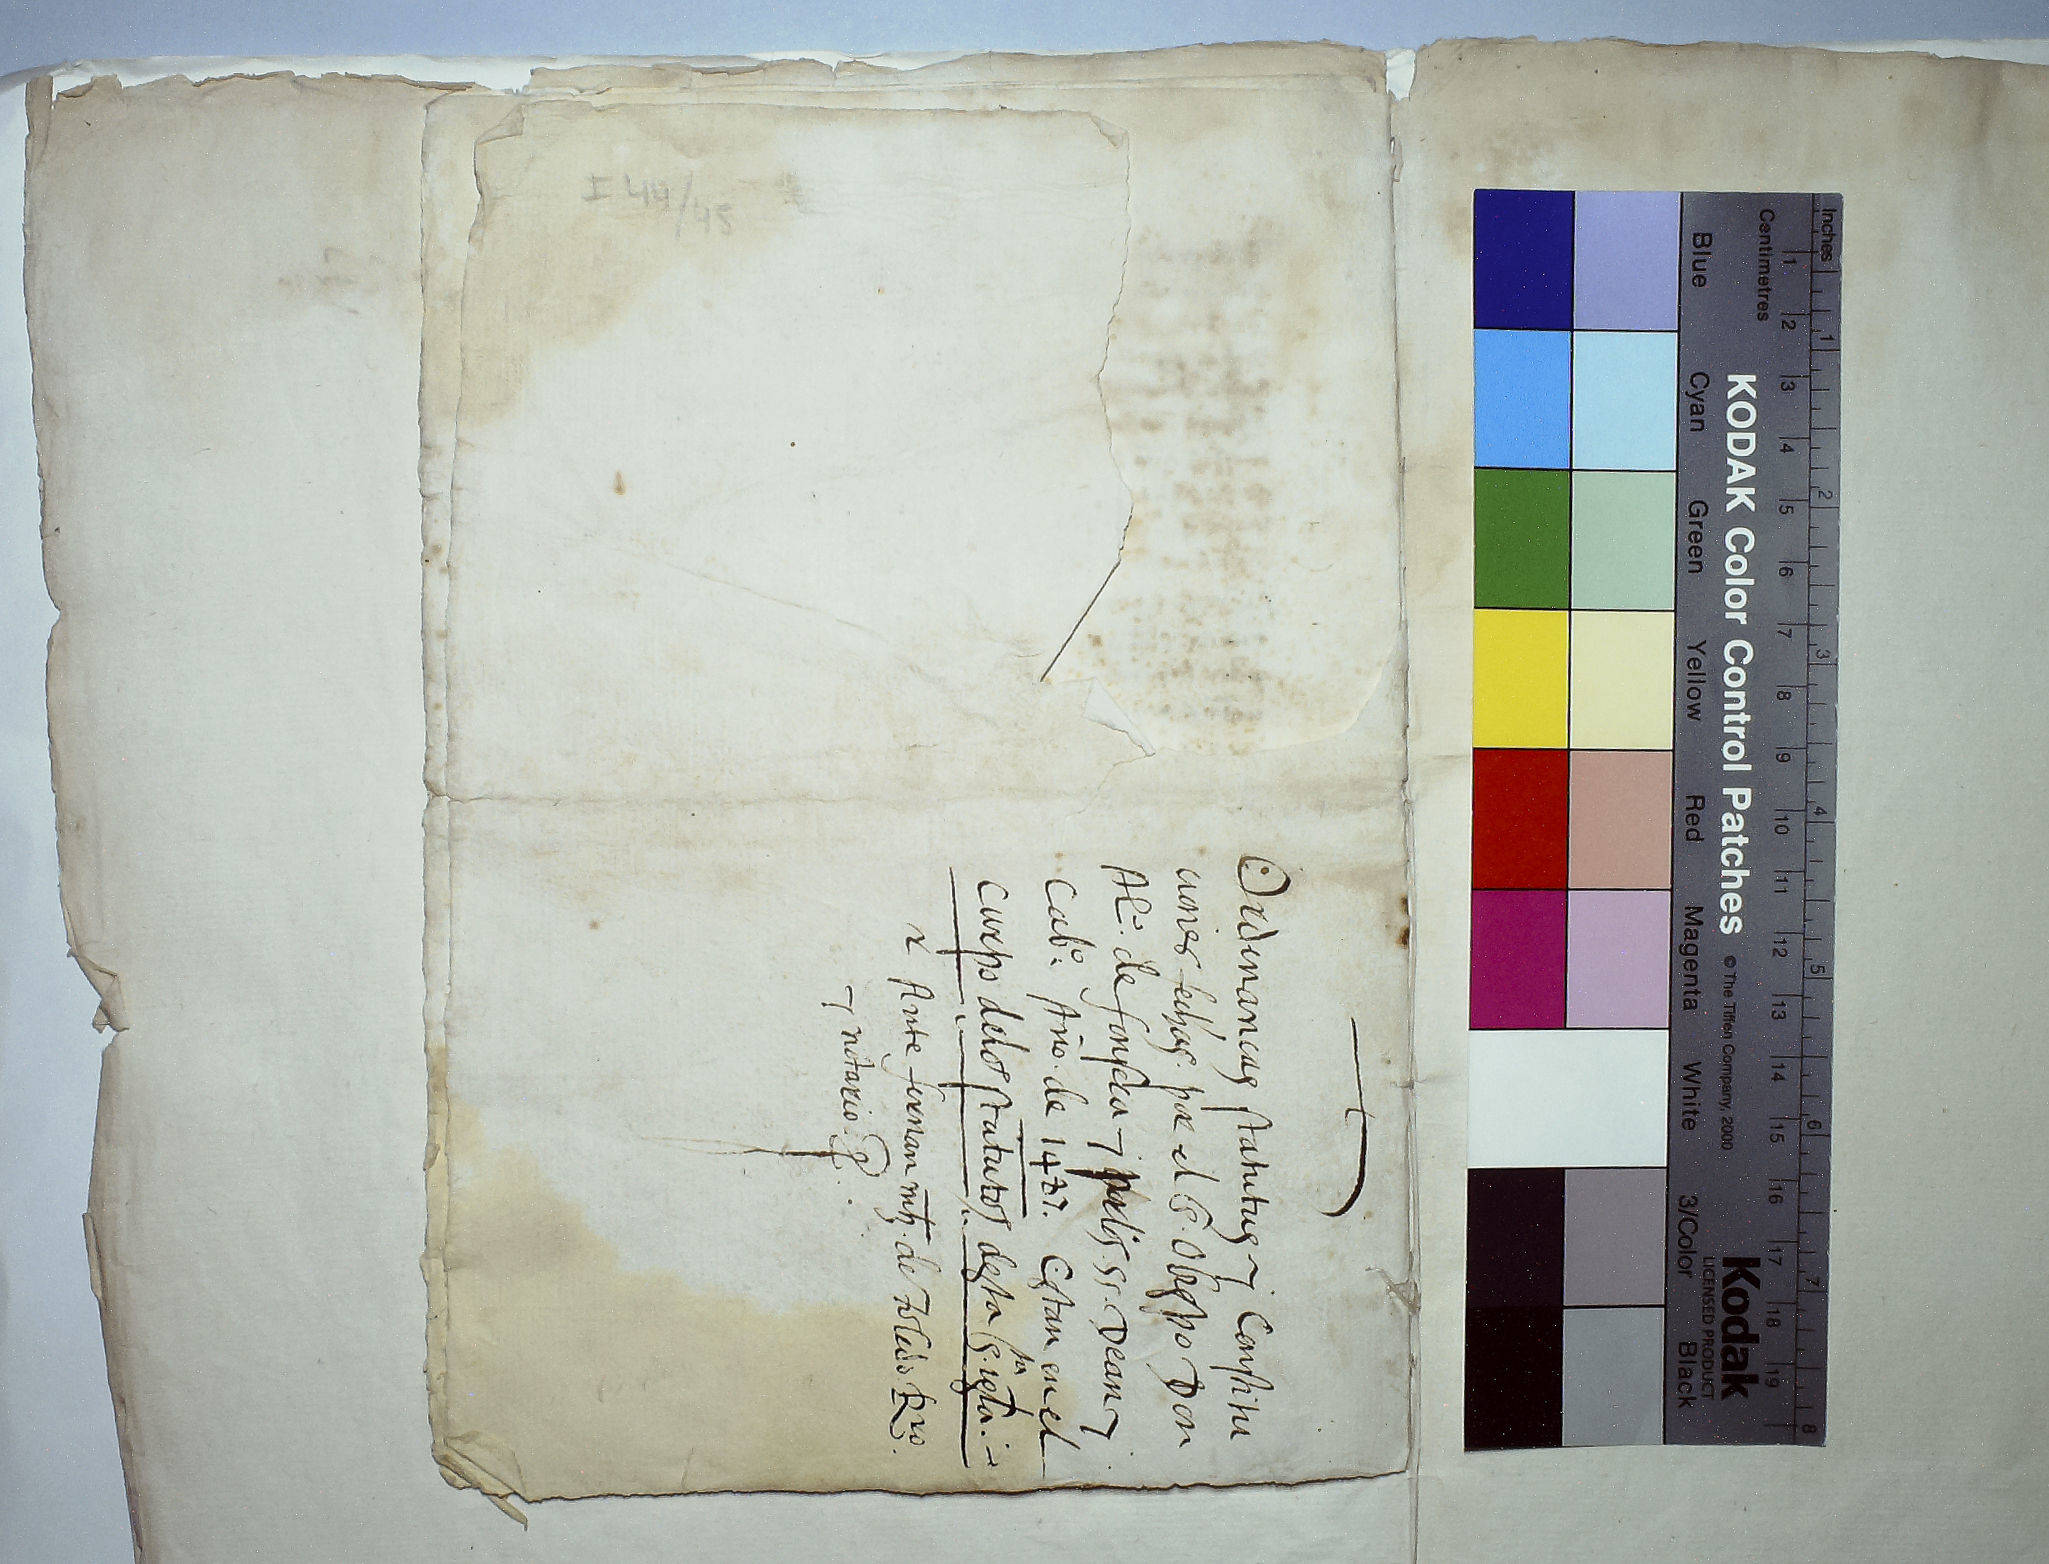 I 44/45
Ordinancias statutus y Constitu
ciones fechas por el S. Obispo Don
Alº. de fonseca y por los ss. Dean y
Cabº. Año de 1477. Estan en el
cuerpo de los statutos desta s. igła. ta
Ante fernan mrz. de Toledo Rº.
y notario
Inches
Centimetres
1 2 3 4 5 6 7 8
1 2 3 4 5 6 7 8 9 10 11 12 13 14 15 16 17 18 19
KODAK Color Control Patches © The Tiffen Company, 2000
Kodak
LICENSED PRODUCT
Blue Cyan Green Yellow Red Magenta White 3/Color Black